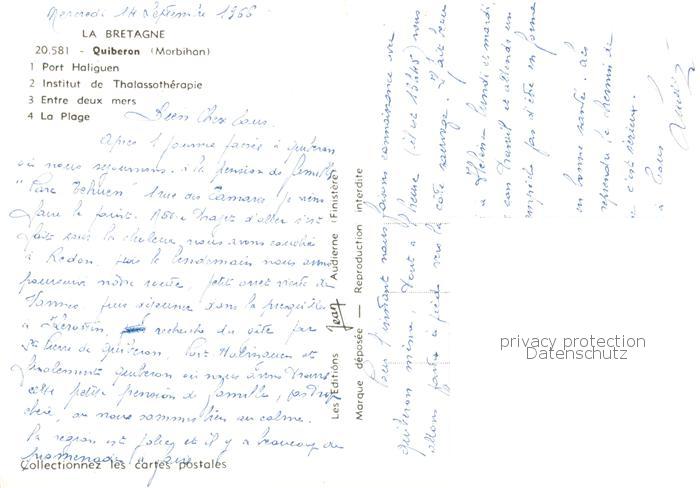 Mercredi 14 Septembre 1966
LA BRETAGNE
20.581 - Quiberon (Morbihan)
1 Port Haliguen
2 Institut de Thalassothérapie
3 Entre deux mers
4 La Plage
Bien Chers tous.
Après 1 journée passée à Quiberon
où nous séjournons à la pension de famille
rue des Tamaris je viens
faire le point. trajet d'aller s'est
fait sous la chaleur, nous avons couché
à Redon, le lendemain nous avons
poursuivi notre route, petit arrêt visite de
Vannes, puis dans la presqu'île
recherche du gîte par
St Pierre de Quiberon, Port Haliguen et
finalement Quiberon où nous avons trouvé
cette petite pension de famille, pas trop
chère, où nous sommes bien au calme.
La région est jolie et il y a beaucoup de
promenades à faire.
Collectionnez les cartes postales
Les Editions Jean Audierne (Finistère)
Marque déposée — Reproduction interdite
Pour l'instant nous faisons connaissance avec
Quiberon même, tout à l'heure (il est 13h45) nous
allons partir à pied vers la côte sauvage. Il fait beau
à lundi et mardi
travail et attends
pas d'être en forme
en bonne santé.
reprendre le chemin de
c'est sérieux.
à tous
privacy protection
Datenschutz